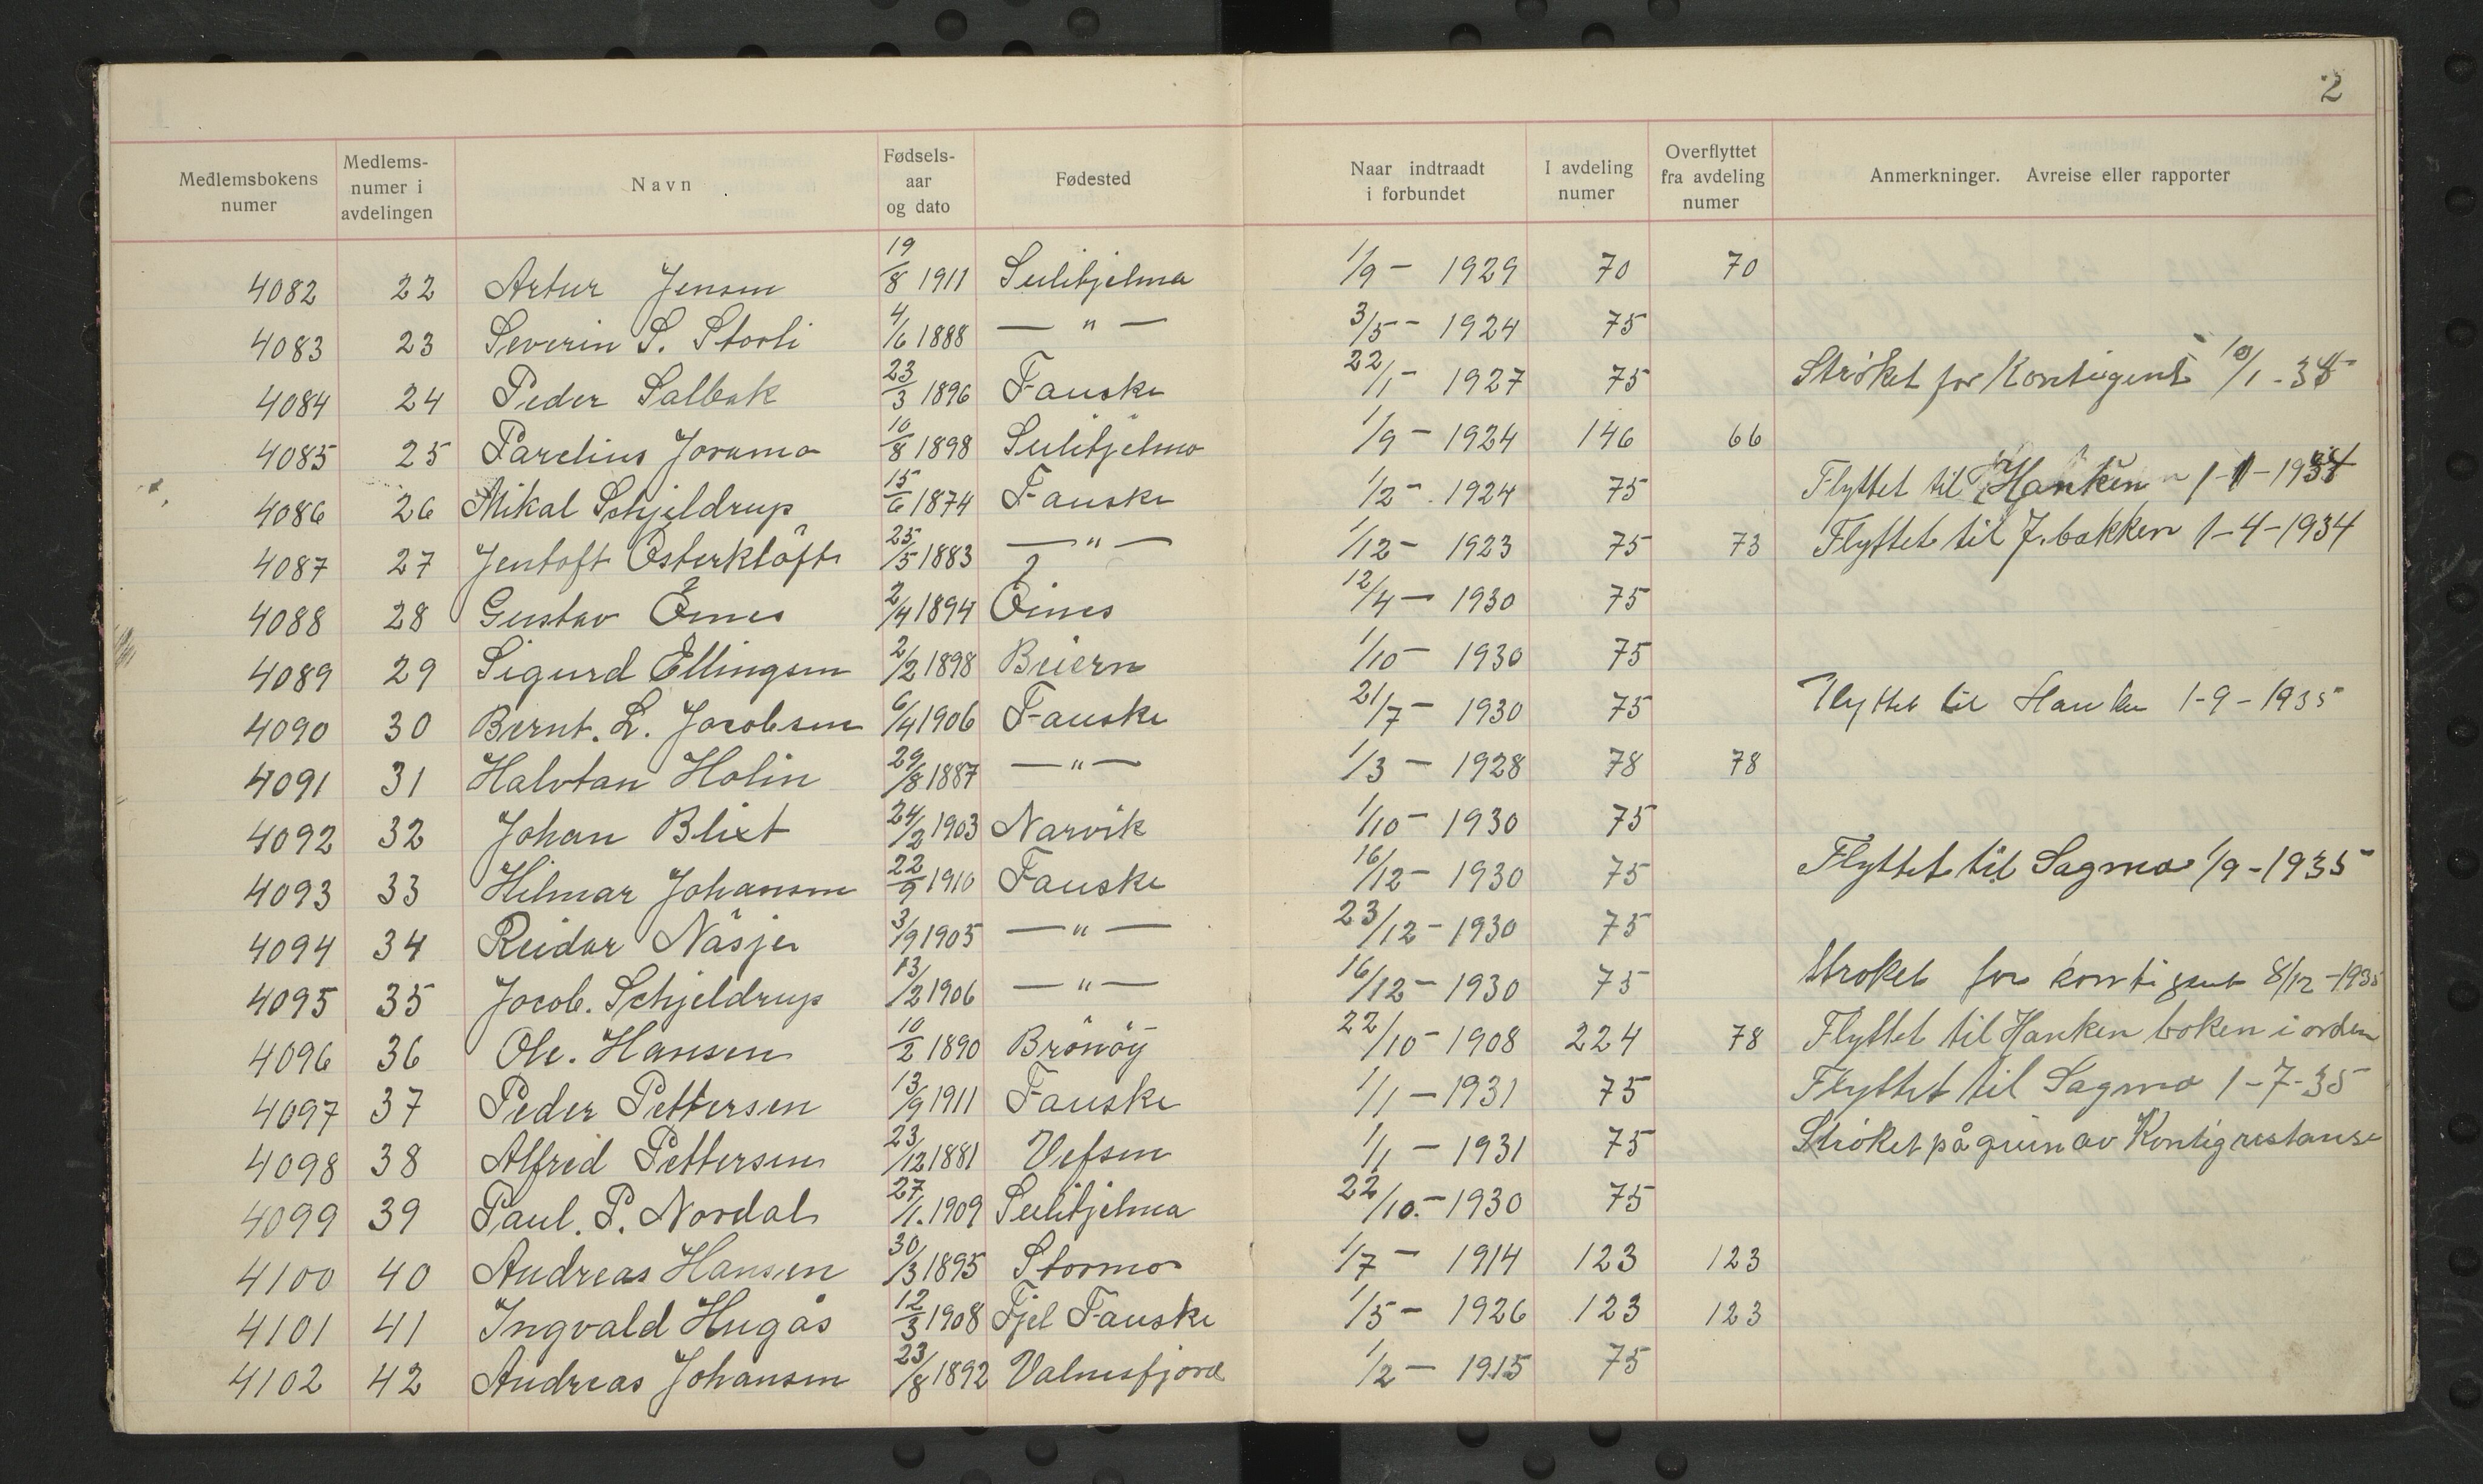 2
Medlemsbokens numer | Medlems- numer i avdelingen | Navn | Fødsels- aar og dato | Fødested | Naar indtraadt i forbundet | I avdeling numer | Overflyttet fra avdeling numer | Anmerkninger. Avreise eller rapporter
4082 22 Artur Jensen 19/8 1911 Sulitjelma 1/9 - 1929 70 70
4083 23 Severin S. Storli 4/6 1888 — " — 3/5 - 1924 75
4084 24 Peder Salbak 23/3 1896 Fauske 22/1 - 1927 75 Strøket for Kontigent
4085 25 Parelius Joramo 10/8 1898 Sulitjelma 1/9 - 1924 146 66
4086 26 Mikal Schjeldrup 15/6 1874 Fauske 1/2 - 1924 75 Flyttet til Hanken
4087 27 Jentoft Österklöft 25/5 1883 — " — 1/12 - 1923 75 73 Flyttet til J.bakken 1-4-1934
4088 28 Gustav 2/4 1894 12/4 - 1930 75
4089 29 Sigurd Ellingsen 2/2 1898 Beiern 1/10 - 1930 75
4090 30 Bernt. L. Jacobsen 6/4 1906 Fauske 21/7 - 1930 75 Flyttet til Hanken 1-9-1935
4091 31 Halvtan Holin 29/8 1887 — " — 1/3 - 1928 78 78
4092 32 Johan Blixt 24/2 1903 Narvik 1/10 - 1930 75
4093 33 Hilmar Johansen 22/9 1910 Fauske 16/12 - 1930 75 Flyttet til Sagmo 1/9-1935
4094 34 Reidar Näsje 3/9 1905 — " — 23/12 - 1930 75
4095 35 Jacob. Schjeldrup 13/2 1906 — " — 16/12 - 1930 75 Strøket for kontigent 8/12-1935
4096 36 Ole. Hansen 10/2 1890 Brönöy 22/10 - 1908 224 78 Flyttet til Hanken boken i orden
4097 37 Peder Pettersen 13/9 1911 Fauske 1/1 - 1931 75 Flyttet til Sagmo 1-7-35
4098 38 Alfred Pettersen 23/12 1881 Vefsen 1/1 - 1931 75 Strøket på grun av Kontigrestanse
4099 39 Paul. P. Nordal 27/1. 1909 Sulitjelma 22/10. - 1930 75
4100 40 Andreas Hansen 30/3 1895 Stormo 1/7 - 1914 123 123
4101 41 Ingvald Hugås 12/3 1908 Fjel Fauske 1/5 - 1926 123 123
4102 42 Andreas Johansen 23/8 1892 Valnesfjord 1/2 - 1915 75